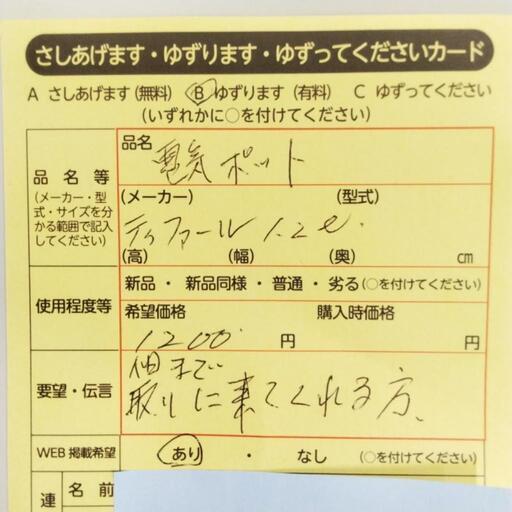 さしあげます・ゆずります・ゆずってくださいカード
A さしあげます(無料) B ゆずります(有料) C ゆずってください
(いずれかに○を付けてください)
品名等
(メーカー・型式・サイズを分かる範囲で記入してください)
品名
電気ポット
(メーカー) (型式)
ティファール 1.2ℓ.
(高) (幅) (奥) ㎝
使用程度等
新品・新品同様・普通・劣る(○を付けてください)
希望価格 購入時価格
1200 円 円
要望・伝言
まで
取りに来てくれる方、
WEB掲載希望 あり ・ なし (○を付けてください)
連 名前